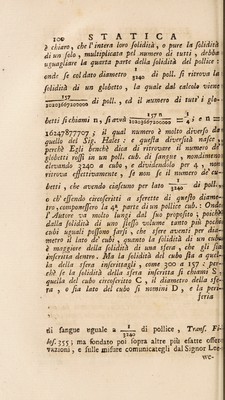 100 STATICA
è chiaro, che l'intera loro solidità, o pure la solidità
di un solo, multiplicata pel numero di tutti, debba
uguagliare la quarta parte della solidità del pollice:
onde se col dato diametro 1/3240 di poll. si ritrova la
solidità di un globetto, la quale dal calcolo viene
157 di poll., ed il numero di tutt'i glo-
betti si chiami n, si avrà 157 n = 1/4; e n =
16247877707; il qual numero è molto diverso da
quello del Sig. Hales: e questa diversità nasce,
perchè Egli benchè dica di ritrovare il numero de'
globetti rossi in un poll. cub. di sangue, nondimeno
elevando 3240 a cubo, e dividendolo per 4, non
ritrova effettivamente, se non se il numero de' cu-
betti, che avendo ciascuno per lato 1/3240 di poll.,
o ch'essendo circoscritti a sferette di questo diame-
tro, compossero la 4ª. parte di un pollice cub. Onde
l'Autore va molto lungi dal suo proposito; poichè
dalla solidità di uno stesso volume tanto più pochi
cubi uguali possono farsi, che sfere aventi per dia-
metro il lato de' cubi, quanto la solidità di un cubo
è maggiore della solidità di una sfera, che gli sia
inscritta dentro. Ma la solidità del cubo sta a quel-
la della sfera inscrittagli, come 300 a 157: per-
chè se la solidità della sfera inscritta si chiami S,
quella del cubo circoscritto C, il diametro della sfe-
ra, e sia lato del cubo si nomini D, e la peri-
feria
di sangue uguale a 1/3240 di pollice, Trans. Fi-
los. 355; ma fondato poi sopra altre più esatte osser-
vazioni, e sulle misure comunicategli dal Signor Lee-
we-